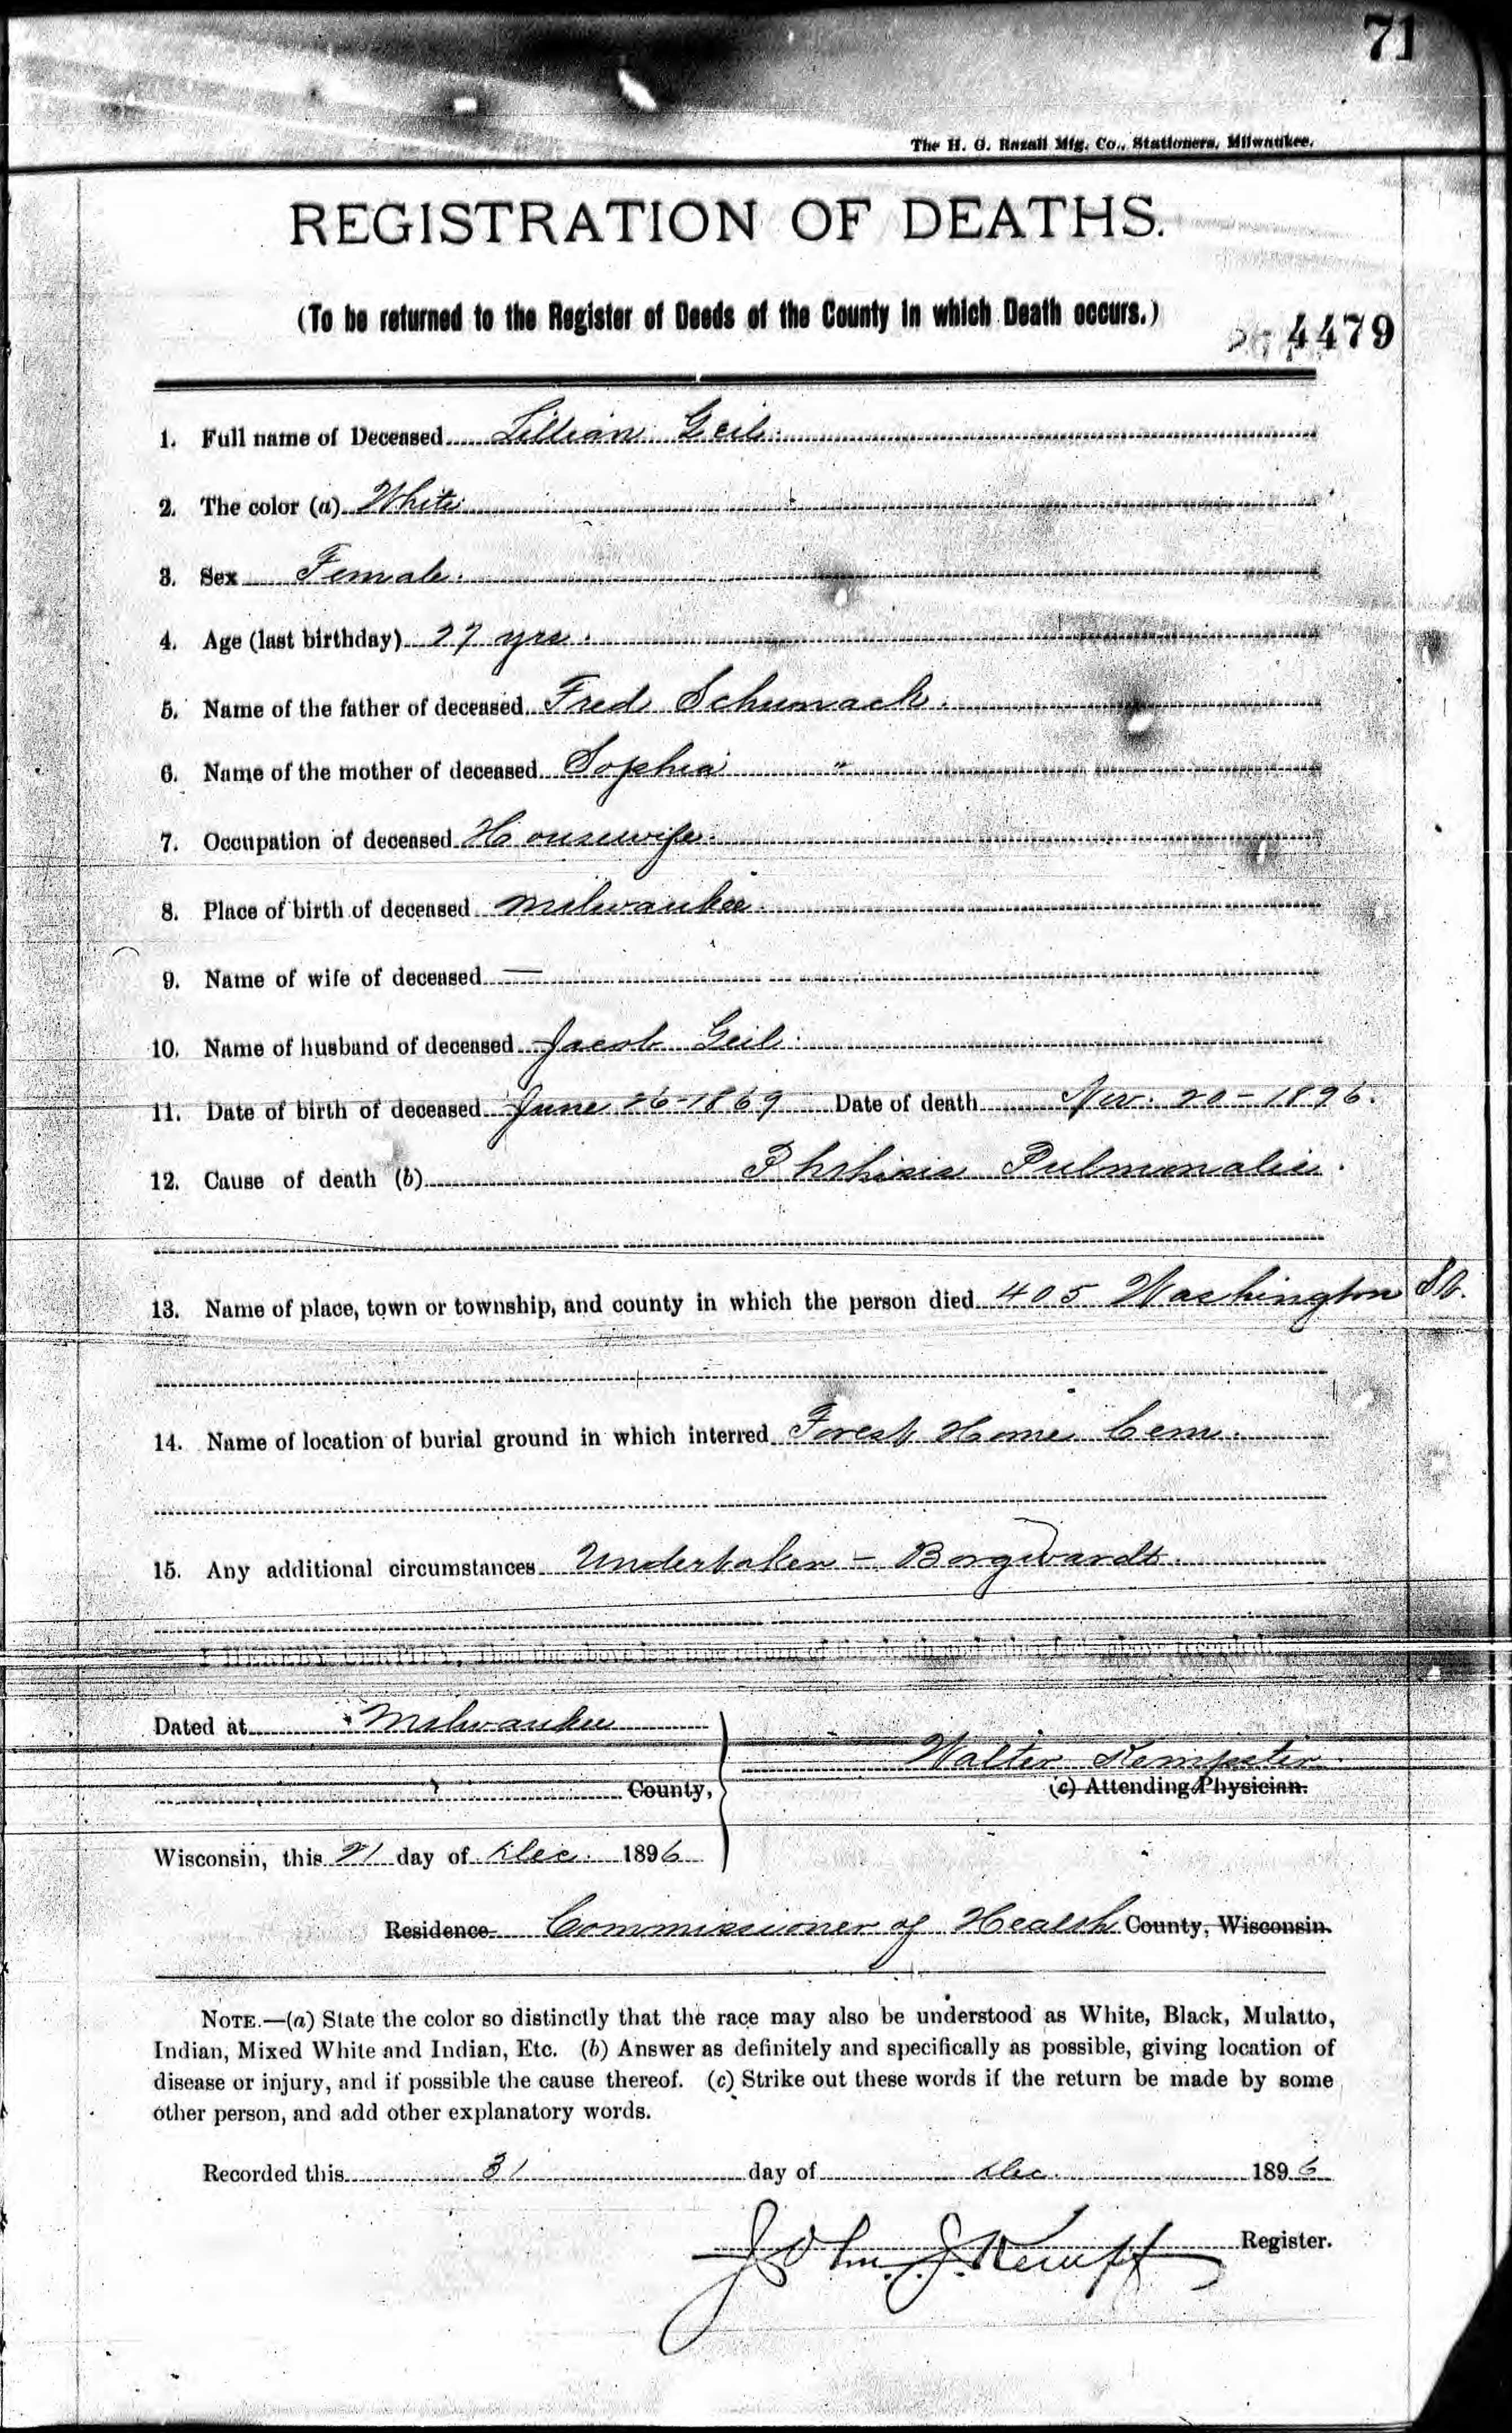 71
The H. G. Razall Mfg. Co., Stationers, Milwaukee.
REGISTRATION OF DEATHS.
(To be returned to the Register of Deeds of the County in which Death occurs.)
4479
1. Full name of Deceased Lillian Geil.
2. The color (a) White
3. Sex Female.
4. Age (last birthday) 27 yrs.
5. Name of the father of deceased Fred Schumack.
6. Name of the mother of deceased Sophia "
7. Occupation of deceased Housewife.
8. Place of birth of deceased Milwaukee.
9. Name of wife of deceased —
10. Name of husband of deceased Jacob Geil.
11. Date of birth of deceased June 26-1869 Date of death Nov. 20-1896.
12. Cause of death (b) Phthisis Pulmonalis.
13. Name of place, town or township, and county in which the person died 405 Washington St.
14. Name of location of burial ground in which interred Forest Home Cem.
15. Any additional circumstances Undertaker - Borgwardt.
I HEREBY CERTIFY, That the above is a true return of the death and other facts above recorded.
Dated at Milwaukee
Walter Kempster
County,
(c) Attending Physician.
Wisconsin, this 21 day of Dec. 1896
Residence Commissioner of Health County, Wisconsin.
NOTE.—(a) State the color so distinctly that the race may also be understood as White, Black, Mulatto,
Indian, Mixed White and Indian, Etc. (b) Answer as definitely and specifically as possible, giving location of
disease or injury, and if possible the cause thereof. (c) Strike out these words if the return be made by some
other person, and add other explanatory words.
Recorded this 31 day of Dec. 1896
John J. Kempf Register.